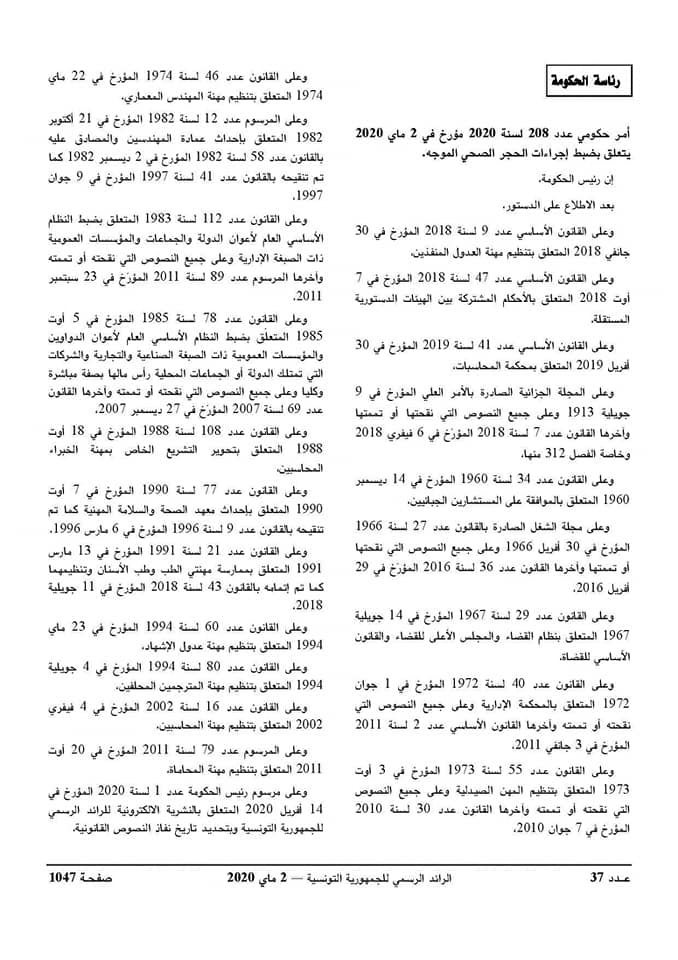 رئاسة الحكومة
أمر حكومي عدد 208 لسنة 2020 مؤرخ في 2 ماي 2020
يتعلق بضبط إجراءات الحجر الصحي الموجه.
إن رئيس الحكومة،
بعد الاطلاع على الدستور،
وعلى القانون الأساسي عدد 9 لسنة 2018 المؤرخ في 30
جانفي 2018 المتعلق بتنظيم مهنة العدول المنفذين،
وعلى القانون الأساسي عدد 47 لسنة 2018 المؤرخ في 7
أوت 2018 المتعلق بالأحكام المشتركة بين الهيئات الدستورية
المستقلة،
وعلى القانون الأساسي عدد 41 لسنة 2019 المؤرخ في 30
أفريل 2019 المتعلق بمحكمة المحاسبات،
وعلى المجلة الجزائية الصادرة بالأمر العلي المؤرخ في 9
جويلية 1913 وعلى جميع النصوص التي نقحتها أو تممتها
وآخرها القانون عدد 7 لسنة 2018 المؤرّخ في 6 فيفري 2018
وخاصة الفصل 312 منها،
وعلى القانون عدد 34 لسنة 1960 المؤرخ في 14 ديسمبر
1960 المتعلق بالموافقة على المستشارين الجبائيين،
وعلى مجلة الشغل الصادرة بالقانون عدد 27 لسنة 1966
المؤرخ في 30 أفريل 1966 وعلى جميع النصوص التي نقحتها
أو تممتها وآخرها القانون عدد 36 لسنة 2016 المؤرّخ في 29
أفريل 2016،
وعلى القانون عدد 29 لسنة 1967 المؤرخ في 14 جويلية
1967 المتعلق بنظام القضاء والمجلس الأعلى للقضاء والقانون
الأساسي للقضاة،
وعلى القانون عدد 40 لسنة 1972 المؤرخ في 1 جوان
1972 المتعلق بالمحكمة الإدارية وعلى جميع النصوص التي
نقحته أو تممته وآخرها القانون الأساسي عدد 2 لسنة 2011
المؤرخ في 3 جانفي 2011،
وعلى القانون عدد 55 لسنة 1973 المؤرخ في 3 أوت
1973 المتعلق بتنظيم المهن الصيدلية وعلى جميع النصوص
التي نقحته أو تممته وآخرها القانون عدد 30 لسنة 2010
المؤرخ في 7 جوان 2010،
وعلى القانون عدد 46 لسنة 1974 المؤرخ في 22 ماي
1974 المتعلق بتنظيم مهنة المهندس المعماري،
وعلى المرسوم عدد 12 لسنة 1982 المؤرخ في 21 أكتوبر
1982 المتعلق بإحداث عمادة المهندسين والمصادق عليه
بالقانون عدد 58 لسنة 1982 المؤرخ في 2 ديسمبر 1982 كما
تم تنقيحه بالقانون عدد 41 لسنة 1997 المؤرخ في 9 جوان
1997،
وعلى القانون عدد 112 لسنة 1983 المتعلق بضبط النظام
الأساسي العام لأعوان الدولة والجماعات والمؤسسات العمومية
ذات الصبغة الإدارية وعلى جميع النصوص التي نقحته أو تممته
وآخرها المرسوم عدد 89 لسنة 2011 المؤرّخ في 23 سبتمبر
2011،
وعلى القانون عدد 78 لسنة 1985 المؤرخ في 5 أوت
1985 المتعلّق بضبط النظام الأساسي العام لأعوان الدواوين
والمؤسسات العمومية ذات الصبغة الصناعية والتجارية والشركات
التي تمتلك الدولة أو الجماعات المحلية رأس مالها بصفة مباشرة
وكليا وعلى جميع النصوص التي نقحته أو تممته وآخرها القانون
عدد 69 لسنة 2007 المؤرّخ في 27 ديسمبر 2007،
وعلى القانون عدد 108 لسنة 1988 المؤرخ في 18 أوت
1988 المتعلق بتحوير التشريع الخاص بمهنة الخبراء
المحاسبين،
وعلى القانون عدد 77 لسنة 1990 المؤرخ في 7 أوت
1990 المتعلق بإحداث معهد الصحة والسلامة المهنية كما تم
تنقيحه بالقانون عدد 9 لسنة 1996 المؤرخ في 6 مارس 1996،
وعلى القانون عدد 21 لسنة 1991 المؤرخ في 13 مارس
1991 المتعلق بممارسة مهنتي الطب وطب الأسنان وتنظيمهما
كما تم إتمامه بالقانون 43 لسنة 2018 المؤرخ في 11 جويلية
2018،
وعلى القانون عدد 60 لسنة 1994 المؤرخ في 23 ماي
1994 المتعلق بتنظيم مهنة عدول الإشهاد،
وعلى القانون عدد 80 لسنة 1994 المؤرخ في 4 جويلية
1994 المتعلق بتنظيم مهنة المترجمين المحلفين،
وعلى القانون عدد 16 لسنة 2002 المؤرخ في 4 فيفري
2002 المتعلق بتنظيم مهنة المحاسبين،
وعلى المرسوم عدد 79 لسنة 2011 المؤرخ في 20 أوت
2011 المتعلق بتنظيم مهنة المحاماة،
وعلى مرسوم رئيس الحكومة عدد 1 لسنة 2020 المؤرخ في
14 أفريل 2020 المتعلق بالنشرية الالكترونية للرائد الرسمي
للجمهورية التونسية وبتحديد تاريخ نفاذ النصوص القانونية،
عـدد 37
الرائد الرسمي للجمهورية التونسية — 2 ماي 2020
صفحـة 1047